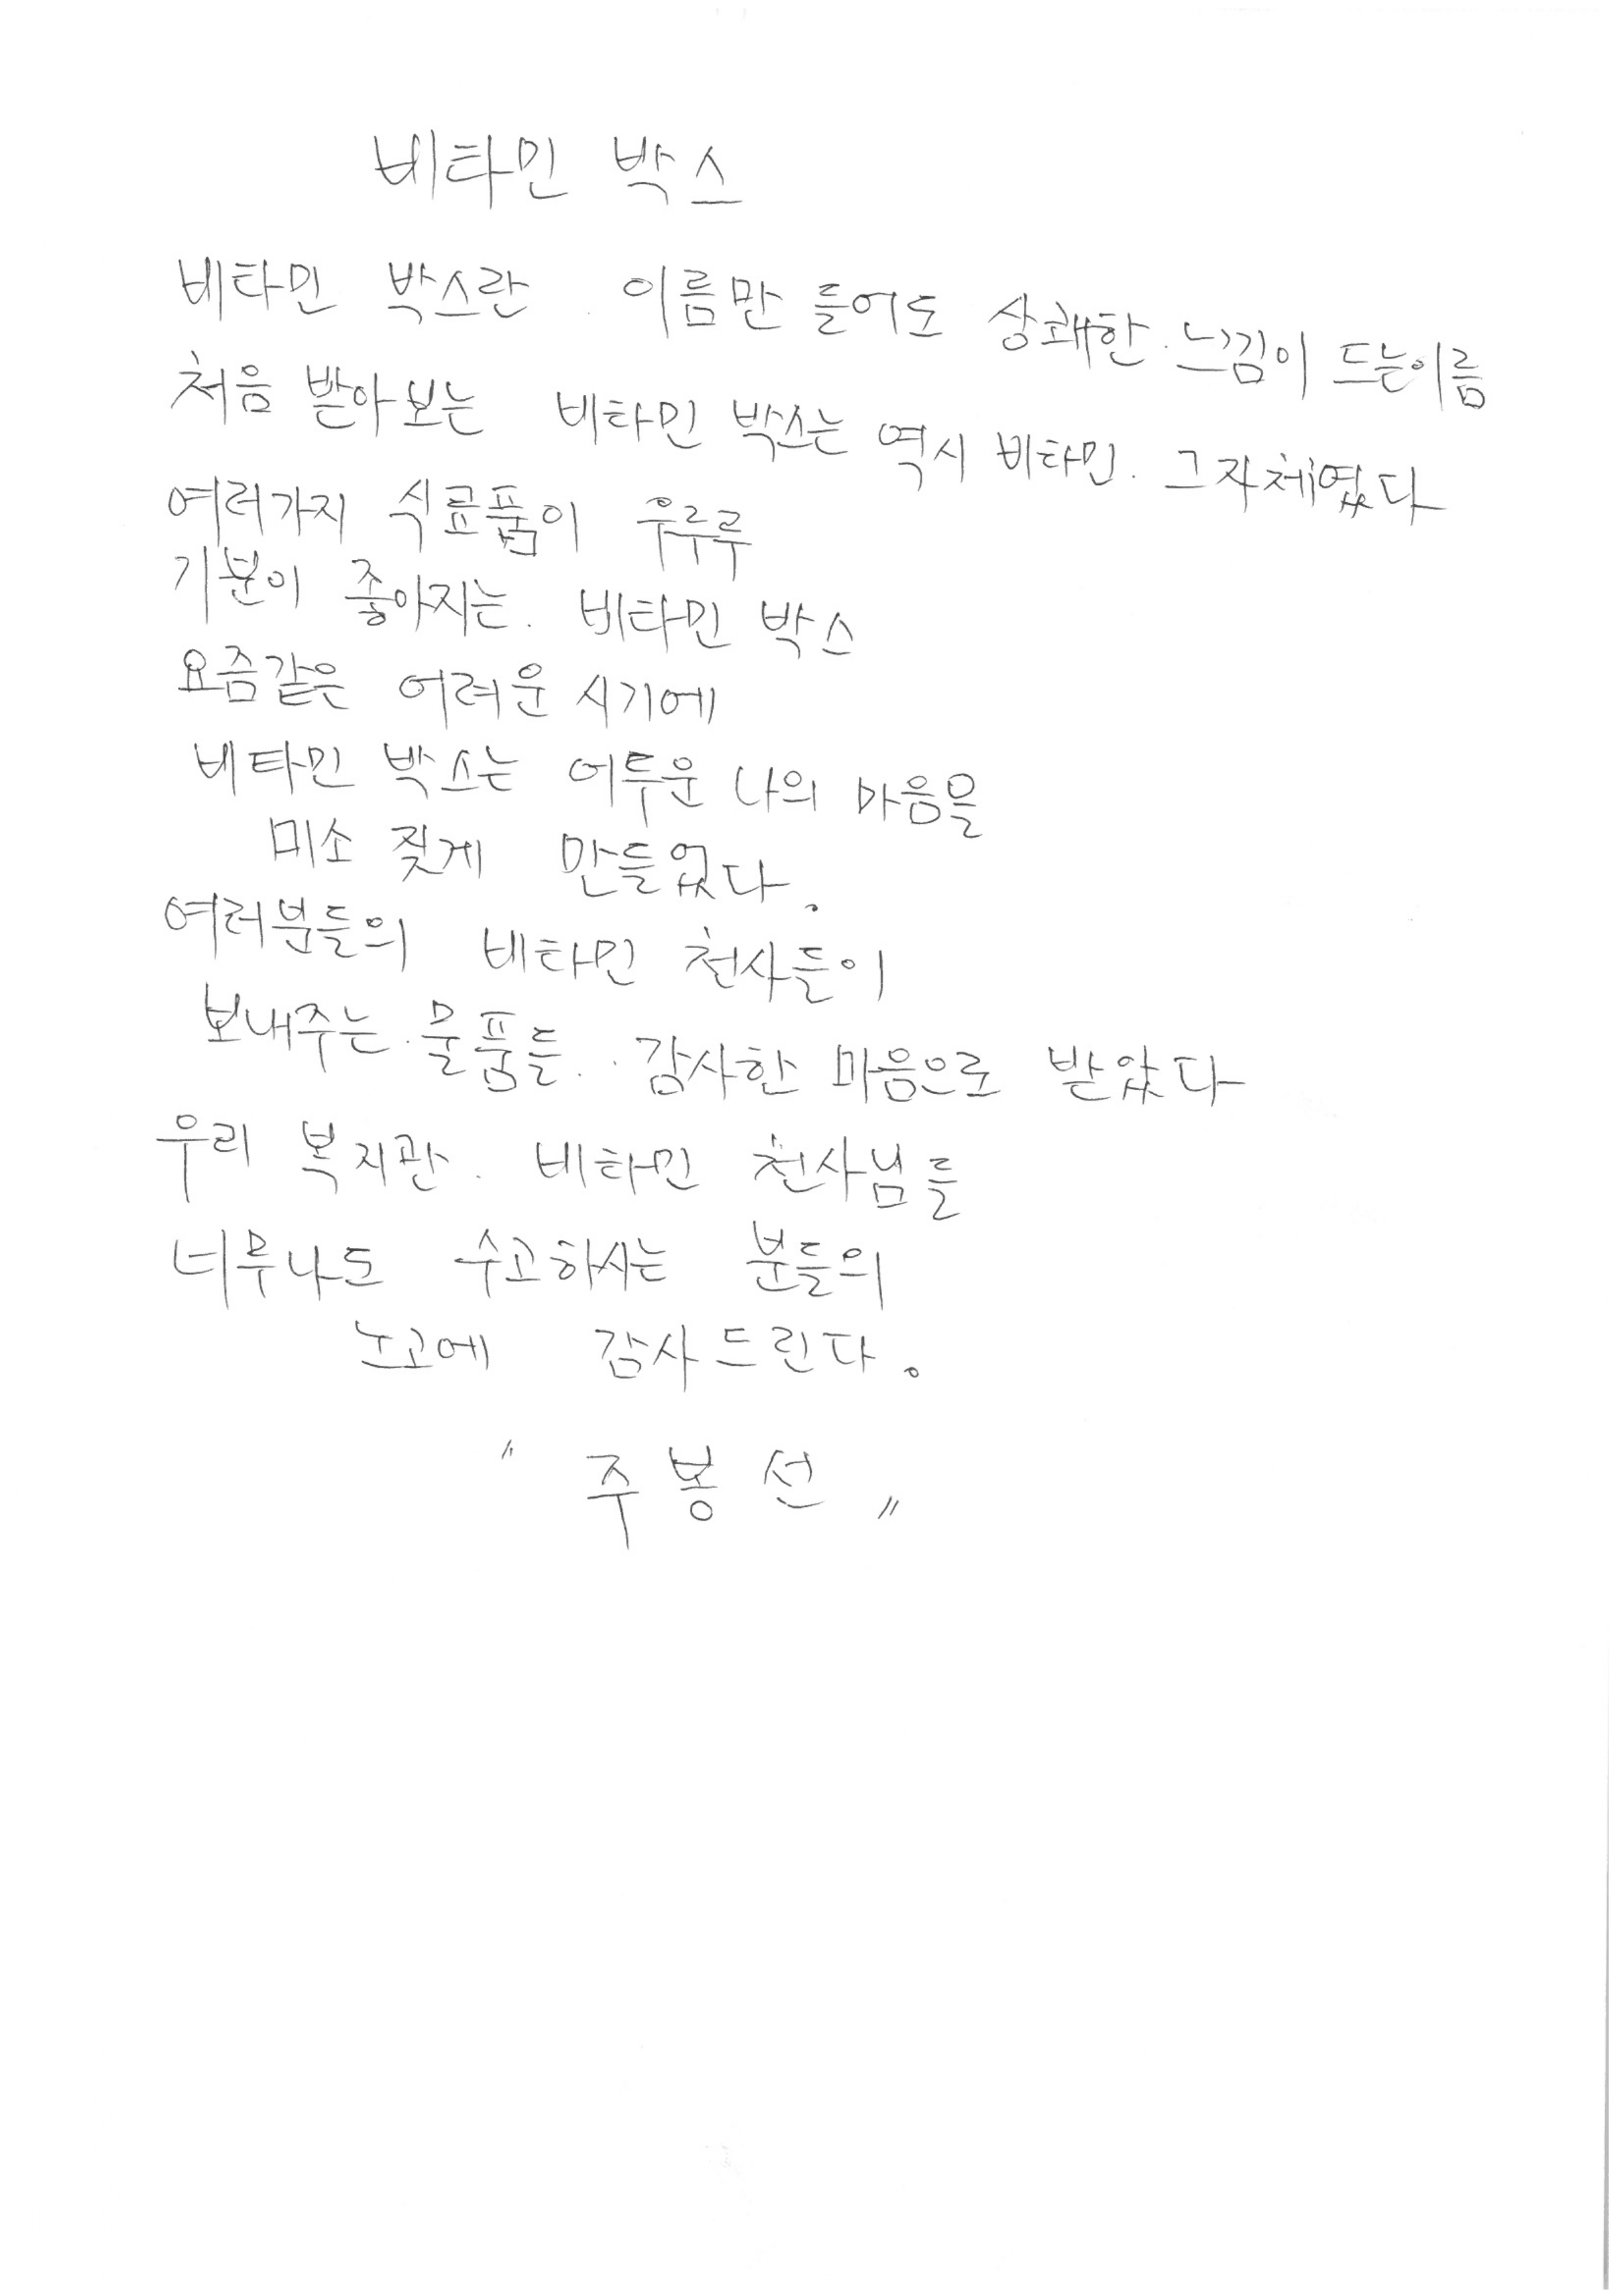 비타민 박스
비타민 박스란 이름만 들어도 상쾌한 느낌이 드는이름
처음 받아보는 비타민 박스는 역시 비타민. 그자체였다
여러가지 식료품이 우루루
기분이 좋아지는. 비타민 박스
요즘같은 어려운 시기에
비타민 박스는 어두운 나의 마음을
미소 짖게 만들었다.
여러분들의 비타민 천사들이
보내주는 물품들.. 감사한 마음으로 받았다
우리 복지관. 비타민 천사님들
너무나도 수고하시는 분들의
노고에 감사드린다.
" 주봉선 "